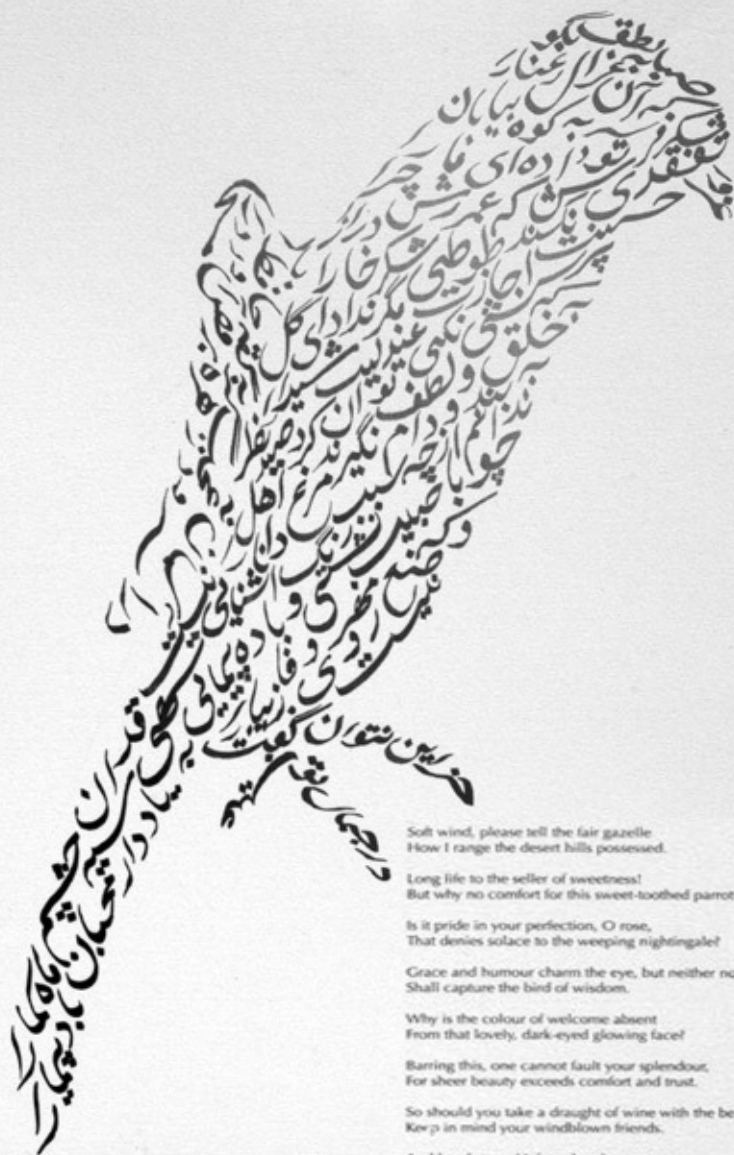 صبا به لطف بگو
آن غزال رعنا را
که سر به کوه و بیابان
تو داده ای ما را
شکر فروش که عمرش دراز چرا
تفقدی نکند طوطی شکرخا را
غرور حسنت اجازت مگر نداد ای گل
که پرسشی نکنی عندلیب شیدا را
به خلق و لطف توان کرد صید اهل نظر
به بند و دام نگیرند مرغ دانا را
ندانم از چه سبب رنگ آشنایی نیست
سهی قدان سیه چشم ماه سیما را
چو با حبیب نشینی و باده پیمایی
به یاد دار محبان باد پیما را
جز این نتوان گفت
در جمال تو
که وضع مهر و وفا نیست روی زیبا را
Soft wind, please tell the fair gazelle
How I range the desert hills possessed.
Long life to the seller of sweetness!
But why no comfort for this sweet-toothed parrot
Is it pride in your perfection, O rose,
That denies solace to the weeping nightingale?
Grace and humour charm the eye, but neither
Shall capture the bird of wisdom.
Why is the colour of welcome absent
From that lovely, dark-eyed glowing face?
Barring this, one cannot fault your splendour,
For sheer beauty exceeds comfort and trust.
So should you take a draught of wine with the
Keep in mind your windblown friends.